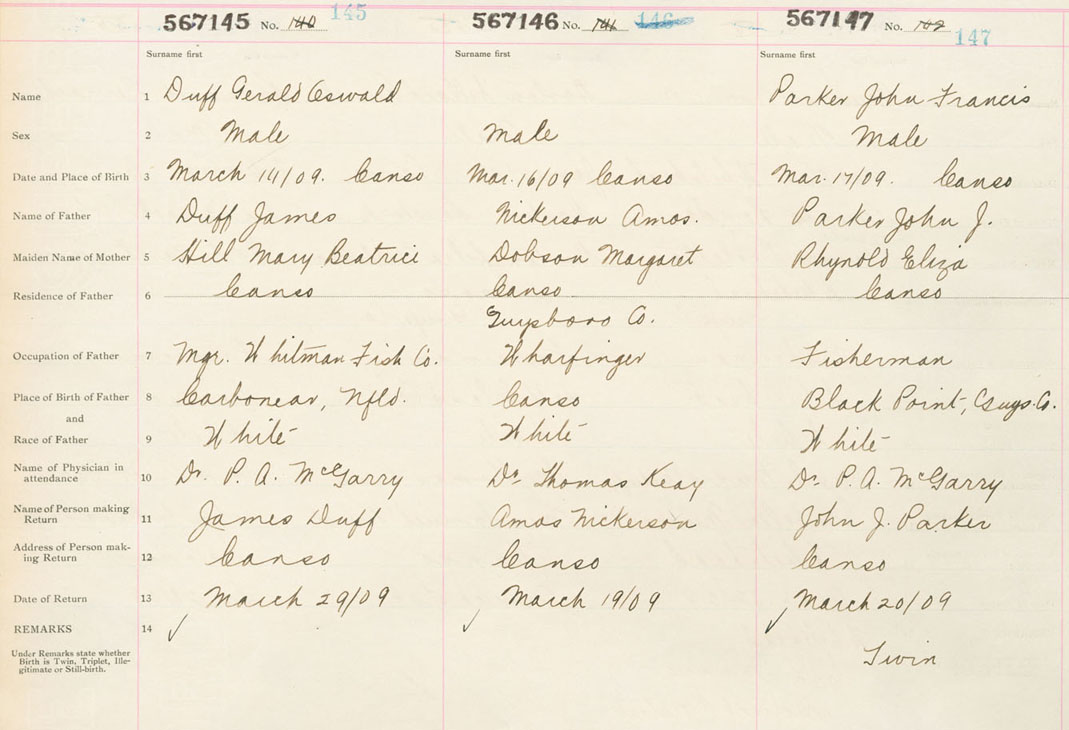 567145 No. 140 145 567146 No. 141 146 567147 No. 142 147
Surname first Surname first Surname first
Name 1 Duff Gerald Oswald Parker John Francis
Sex 2 Male male Male
Date and Place of Birth 3 March 14/09. Canso Mar. 16/09 Canso Mar. 17/09. Canso
Name of Father 4 Duff James Nickerson Amos. Parker John J.
Maiden Name of Mother 5 Hill Mary Beatrice Dobson Margaret Rhynold Eliza
Residence of Father 6 Canso Canso Canso
Guysboro Co.
Occupation of Father 7 Mgr. Whitman Fish Co. Wharfinger Fisherman
Place of Birth of Father 8 Carbonear, Nfld. Canso Black Point, Guys. Co.
and
Race of Father 9 White White White
Name of Physician in
attendance 10 Dr. P. A. McGarry Dr Thomas Keay Dr. P. A. McGarry
Name of Person making
Return 11 James Duff Amos Nickerson John J. Parker
Address of Person mak-
ing Return 12 Canso Canso Canso
Date of Return 13 March 29/09 March 19/09 March 20/09
REMARKS 14
Under Remarks state whether
Birth is Twin, Triplet, Ille-
gitimate or Still-birth. Twin